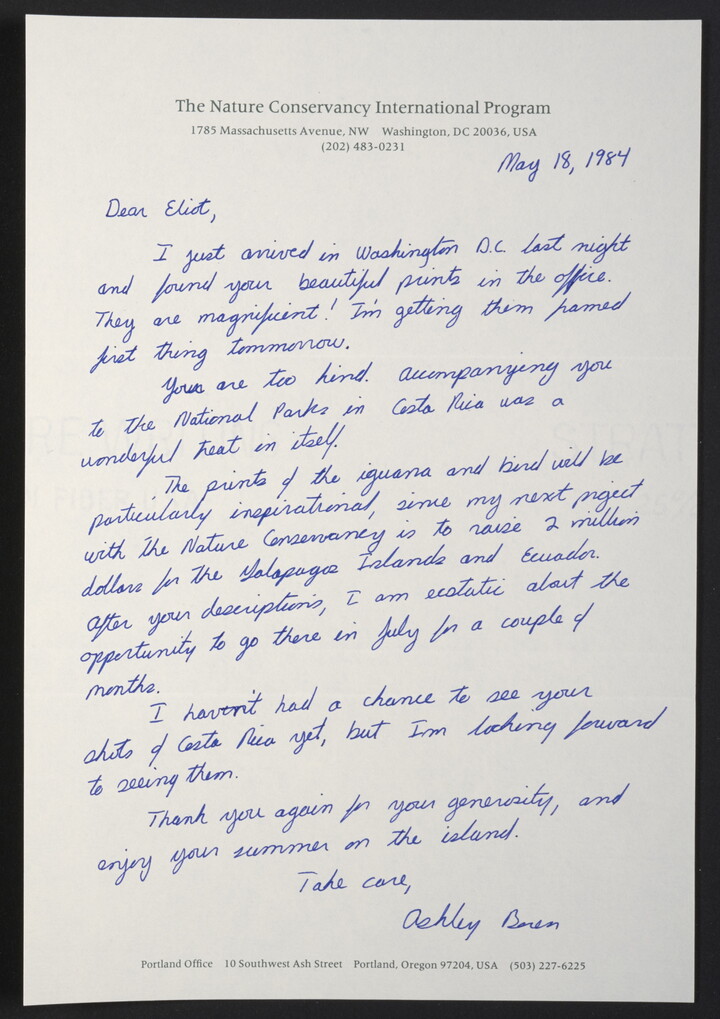 The Nature Conservancy International Program
1785 Massachusetts Avenue, NW Washington, DC 20036, USA
(202) 483-0231
May 18, 1984
Dear Eliot,
I just arrived in Washington D.C. last night
and found your beautiful prints in the office.
They are magnificent! I'm getting them framed
first thing tommorrow.
You are too kind. Accompanying you
to the National Parks in Costa Rica was a
wonderful treat in itself.
The prints of the iguana and bird will be
particularly inspirational, since my next project
with the Nature Conservancy is to raise 2 million
dollars for the Galapagos Islands and Ecuador.
After your descriptions, I am ecstatic about the
opportunity to go there in July for a couple of
months.
I haven't had a chance to see your
shots of Costa Rica yet, but I'm looking forward
to seeing them.
Thank you again for your generosity, and
enjoy your summer on the island.
Take care,
Ashley Boren
Portland Office 10 Southwest Ash Street Portland, Oregon 97204, USA (503) 227-6225